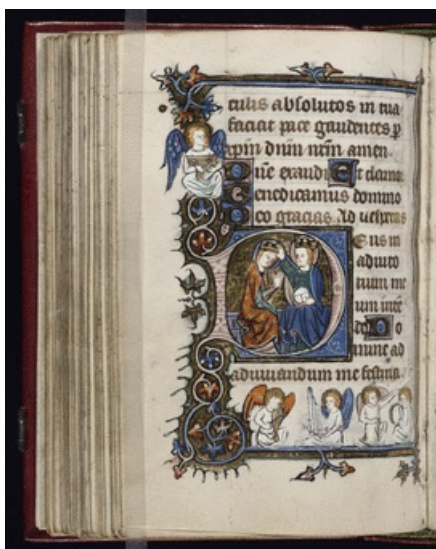 culis absolutos in tua
faciat pace gaudentes p
xpm dnm nrm amen
Dne exaudi Et clamor
Benedicamus domino
Deo gracias Ad uesperas
Deus in
adiuto
rium me
um inte
de Do
mine ad
adiuuandum me festina